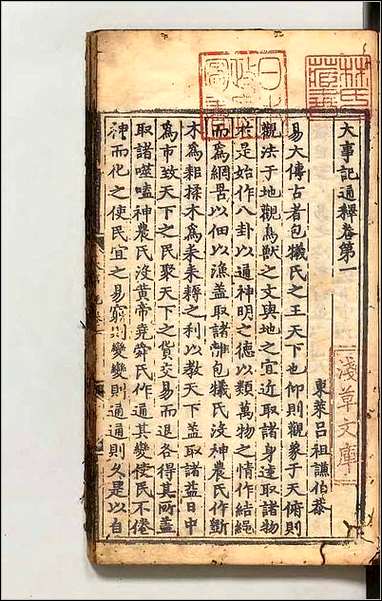 大事記通釋卷第一
東萊呂祖謙伯恭
易大傳古者包犧氏之王天下也仰則觀象于天俯則
觀法于地觀鳥獸之文與地之宜近取諸身遠取諸物
於是始作八卦以通神明之德以類萬物之情作結繩
而爲網罟以佃以漁蓋取諸離包犧氏沒神農氏作斲
木爲耜揉木爲耒耒耨之利以教天下蓋取諸益日中
爲市致天下之民聚天下之貨交易而退各得其所蓋
取諸噬嗑神農氏沒黃帝堯舜氏作通其變使民不倦
神而化之使民宜之易窮則變變則通通則久是以自
林氏藏書
淺草文庫